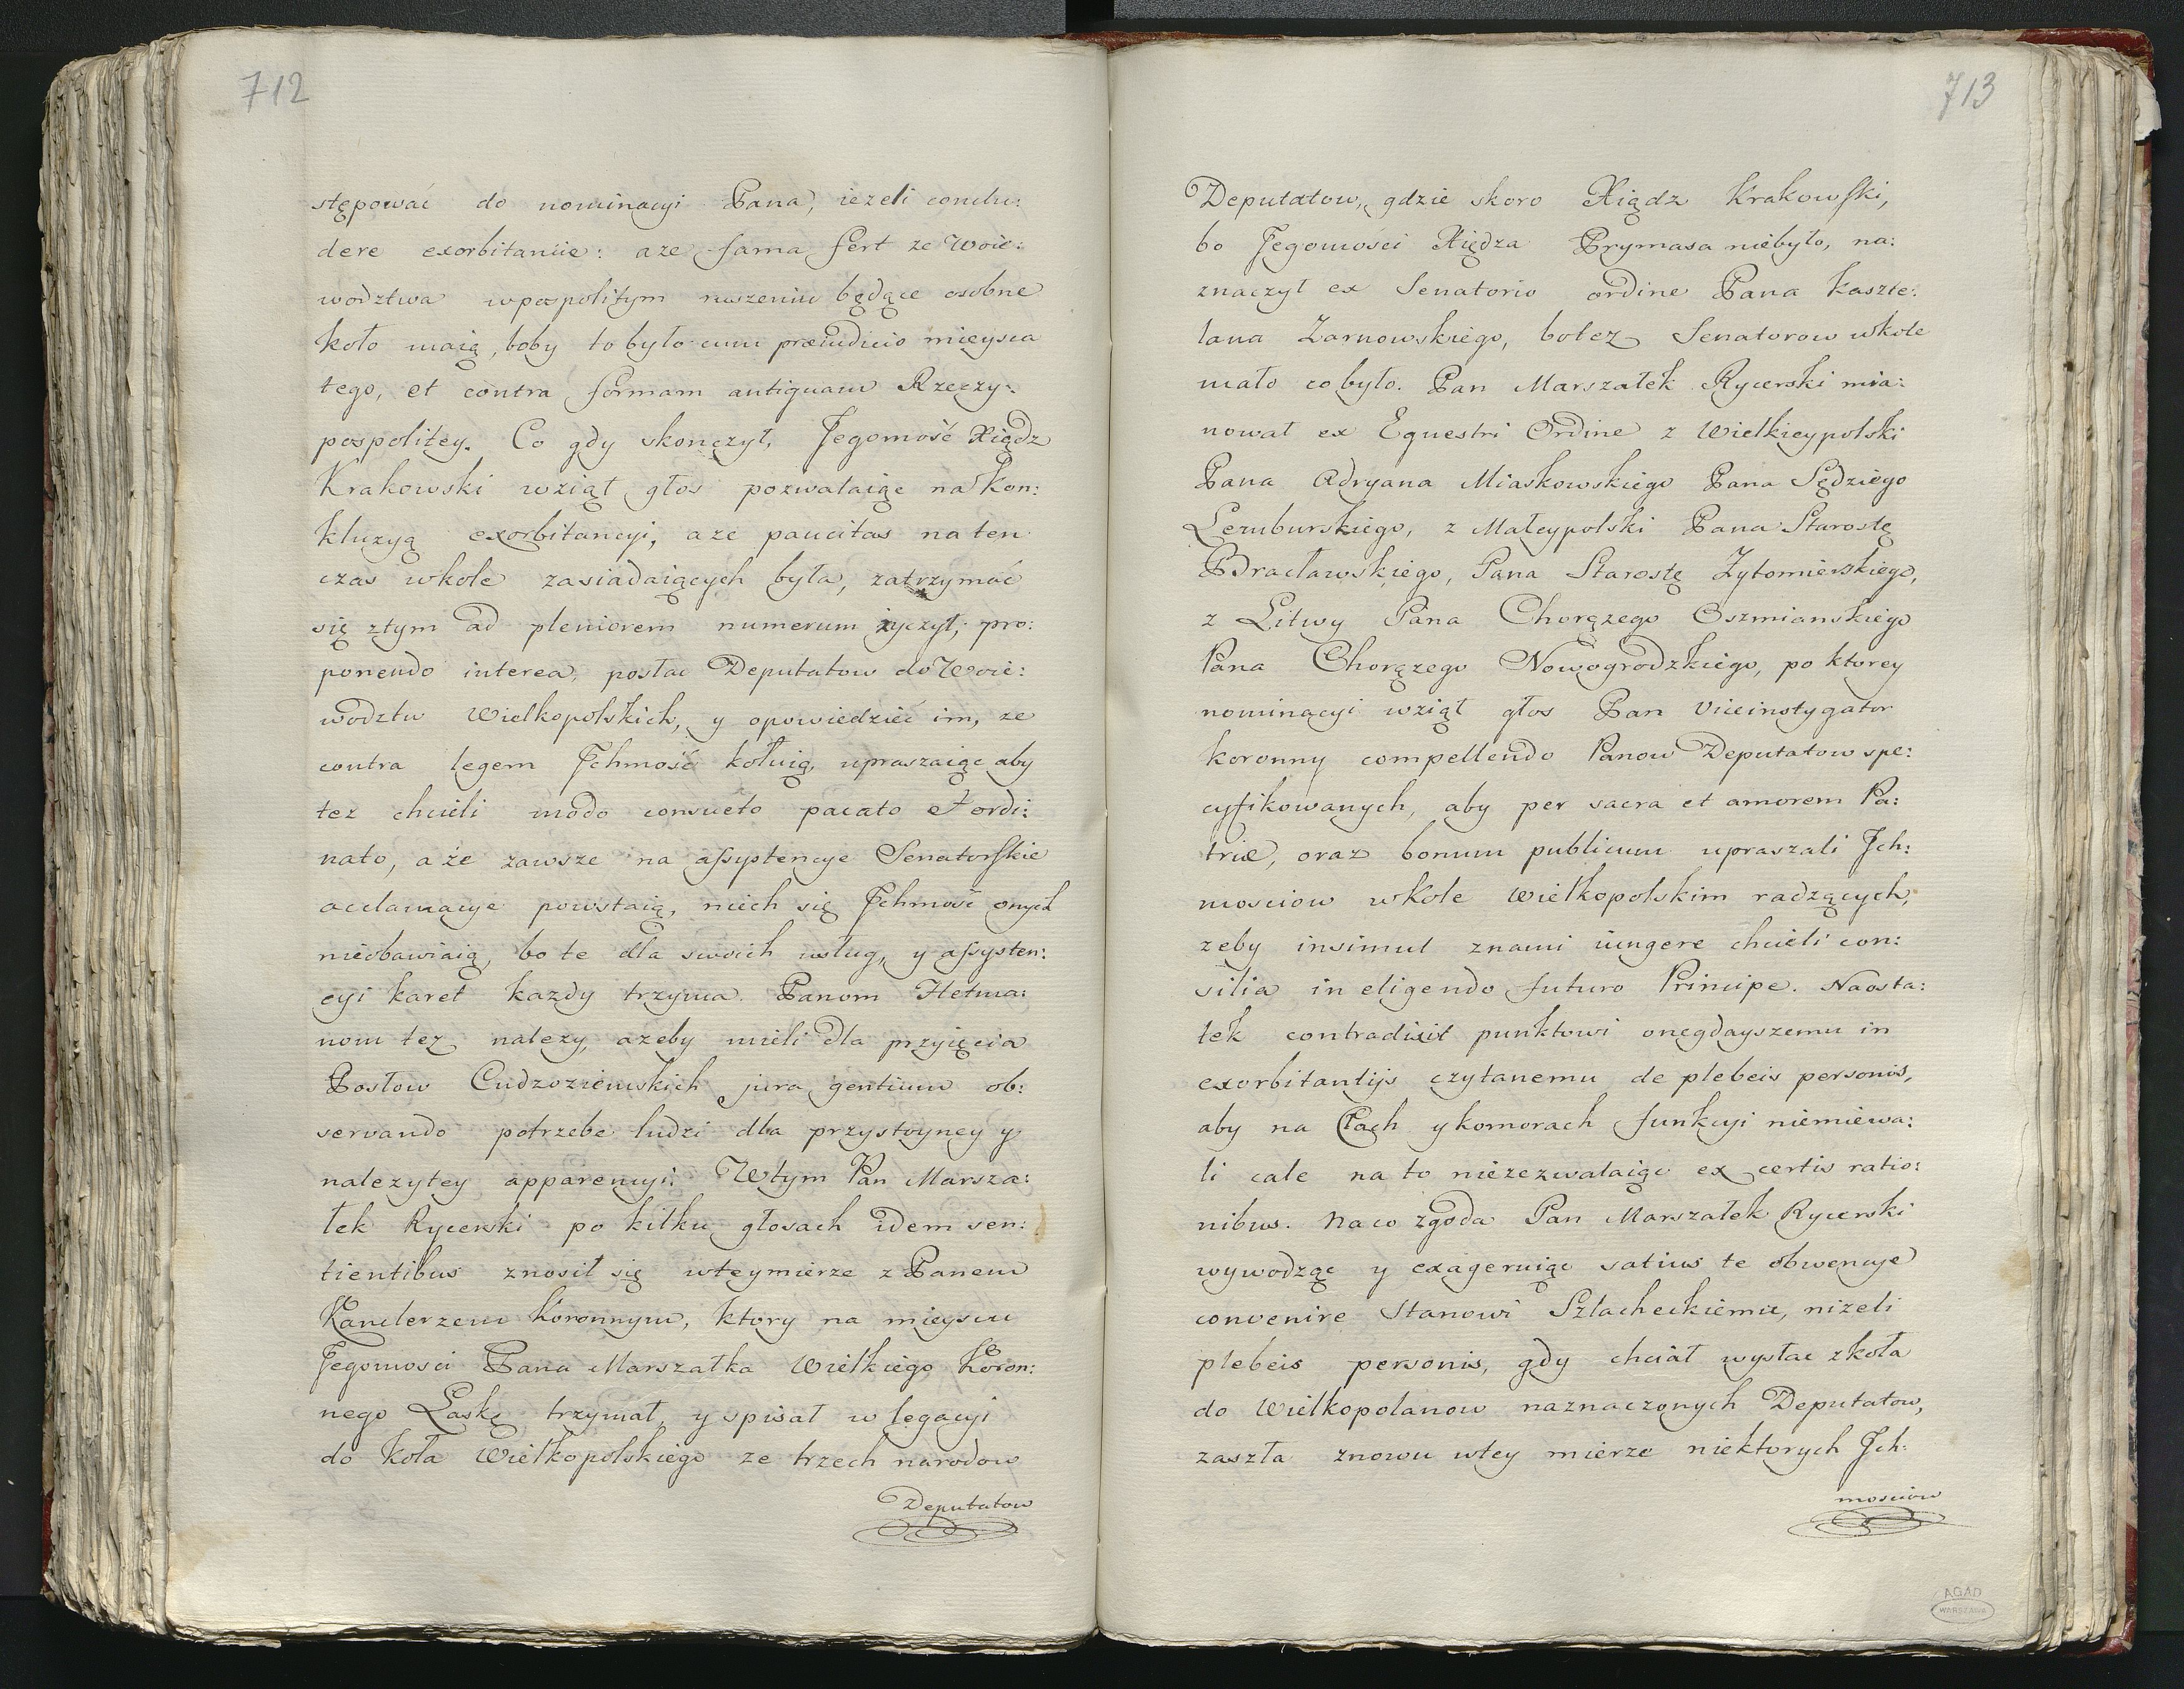 712
stępować do nominacyi Pana, ieżeli conclu:
dere exorbitancie: aże fama fert ze Woie:
wodztwa wpospolitym ruszeniu będące osobne
koło maią, boby to było cum præiudicio mieysca
tego, et contra formam antiquam Rzeczy:
pospolitey. Co gdy skonczył, Jegomość Xiądz
Krakowski wziął głos pozwalaiąc na kon:
kluzyą exorbitancyi, aże paucitas na ten
czas wkole zasiadaiących była, zatrzymać
się ztym ad pleniorem numerum życzył, pro:
ponendo interea, posłać Deputatow do Woie:
wodztw Wielkopolskich, y opowiedzieć im, ze
contra legem Jchmość kołuią, upraszaiąc aby
tez chcieli modo consueto pacato et ordi:
nato, a że zawsze na assystencye Senatorskie
acclamacye powstaią, niech się Jchmość onych
nieobawiaią, bo te dla swoich usług, y assysten:
cyi karet kazdy trzyma. Panom Hetma:
nom tez nalezy, azeby mieli dla przyięcia
Posłow Cudzoziemskich jura gentium ob:
servando potrzebe ludzi dla przystoyney y
nalezytey apparencyi. Wtym Pan Marsza:
łek Rycerski po kilku głosach idem sen:
tientibus znosił się wteymierze z Panem
Kanclerzem Koronnym, ktory na mieyscu
Jegomosci Pana Marszałka Wielkiego Koron:
nego Laskę trzymał, y spisał w legacyi
do koła Wielkopolskiego ze trzech narodow
Deputatow
713
Deputatow, gdzie skoro Xiądz Krakowski,
bo Jegomości Xiędza Prymasa niebyło, na:
znaczył ex Senatorio ordine Pana Kaszte:
lana Zarnowskiego, botez Senatorow wkole
mało cobyło. Pan Marszałek Rycerski mia:
nował ex Equestri Ordine z Wielkieypolski
Pana Adryana Miaskowskiego Pana Sędziego
Lemburskiego, z Małeypolski Pana Starostę
Bracławskiego, Pana Starostę Zytomierskiego,
z Litwy Pana Chorązego Oszmianskiego
Pana Chorązego Nowogrodzkiego, po ktorey
nominacyi wziął głos Pan Viceinstygator
koronny compellendo Panow Deputatow spe:
cyfikowanych, aby per sacra et amorem Pa:
triæ, oraz bonum publicum upraszali Jch:
mosciow wkole Wielkopolskim radzących,
zeby insimul znami iungere chcieli con:
silia in eligendo futuro Principe. Naosta:
tek contradixit punktowi onegdayszemu in
exorbitantijs czytanemu de plebeis personis,
aby na Cłach ykomorach funkcyi niemiewa:
li cale na to niezezwalaiąc ex certis ratio:
nibus. Naco zgoda Pan Marszałek Rycerski
wywodząc y exageruiąc satius te obwencye
convenire Stanowi Szlacheckiemu, nizeli
plebeis personis, gdy chciał wysłac zkoła
do Wielkopolanow naznaczonych Deputatow,
zaszła znowu wtey mierze niektorych Jch:
mosciow
AGAD
WARSZAWA